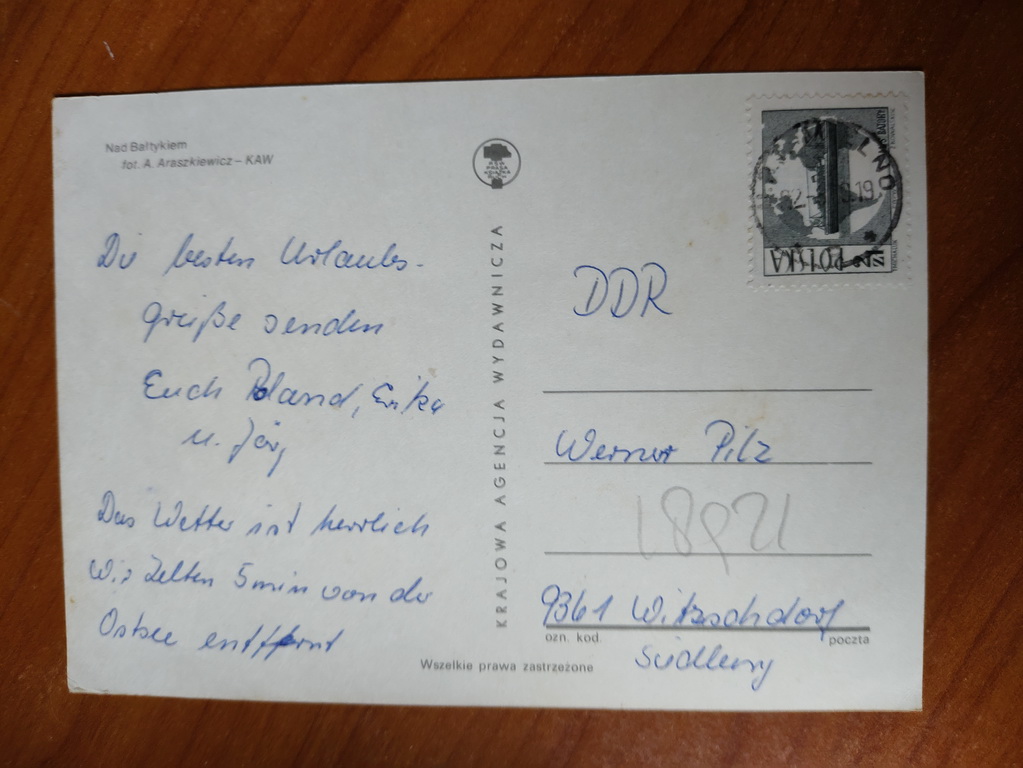 Nad Bałtykiem
fot. A. Araszkiewicz – KAW
Die besten Urlaubs-
grüße senden
Euch Roland, Erika
u. Jörg
Das Wetter ist herrlich
Wir Zelten 5 min von der
Ostsee entfernt
KRAJOWA AGENCJA WYDAWNICZA
Wszelkie prawa zastrzeżone
POLSKA
DDR
Werner Pilz
9361 Witzschdorf
ozn. kod.
poczta
Siedlung